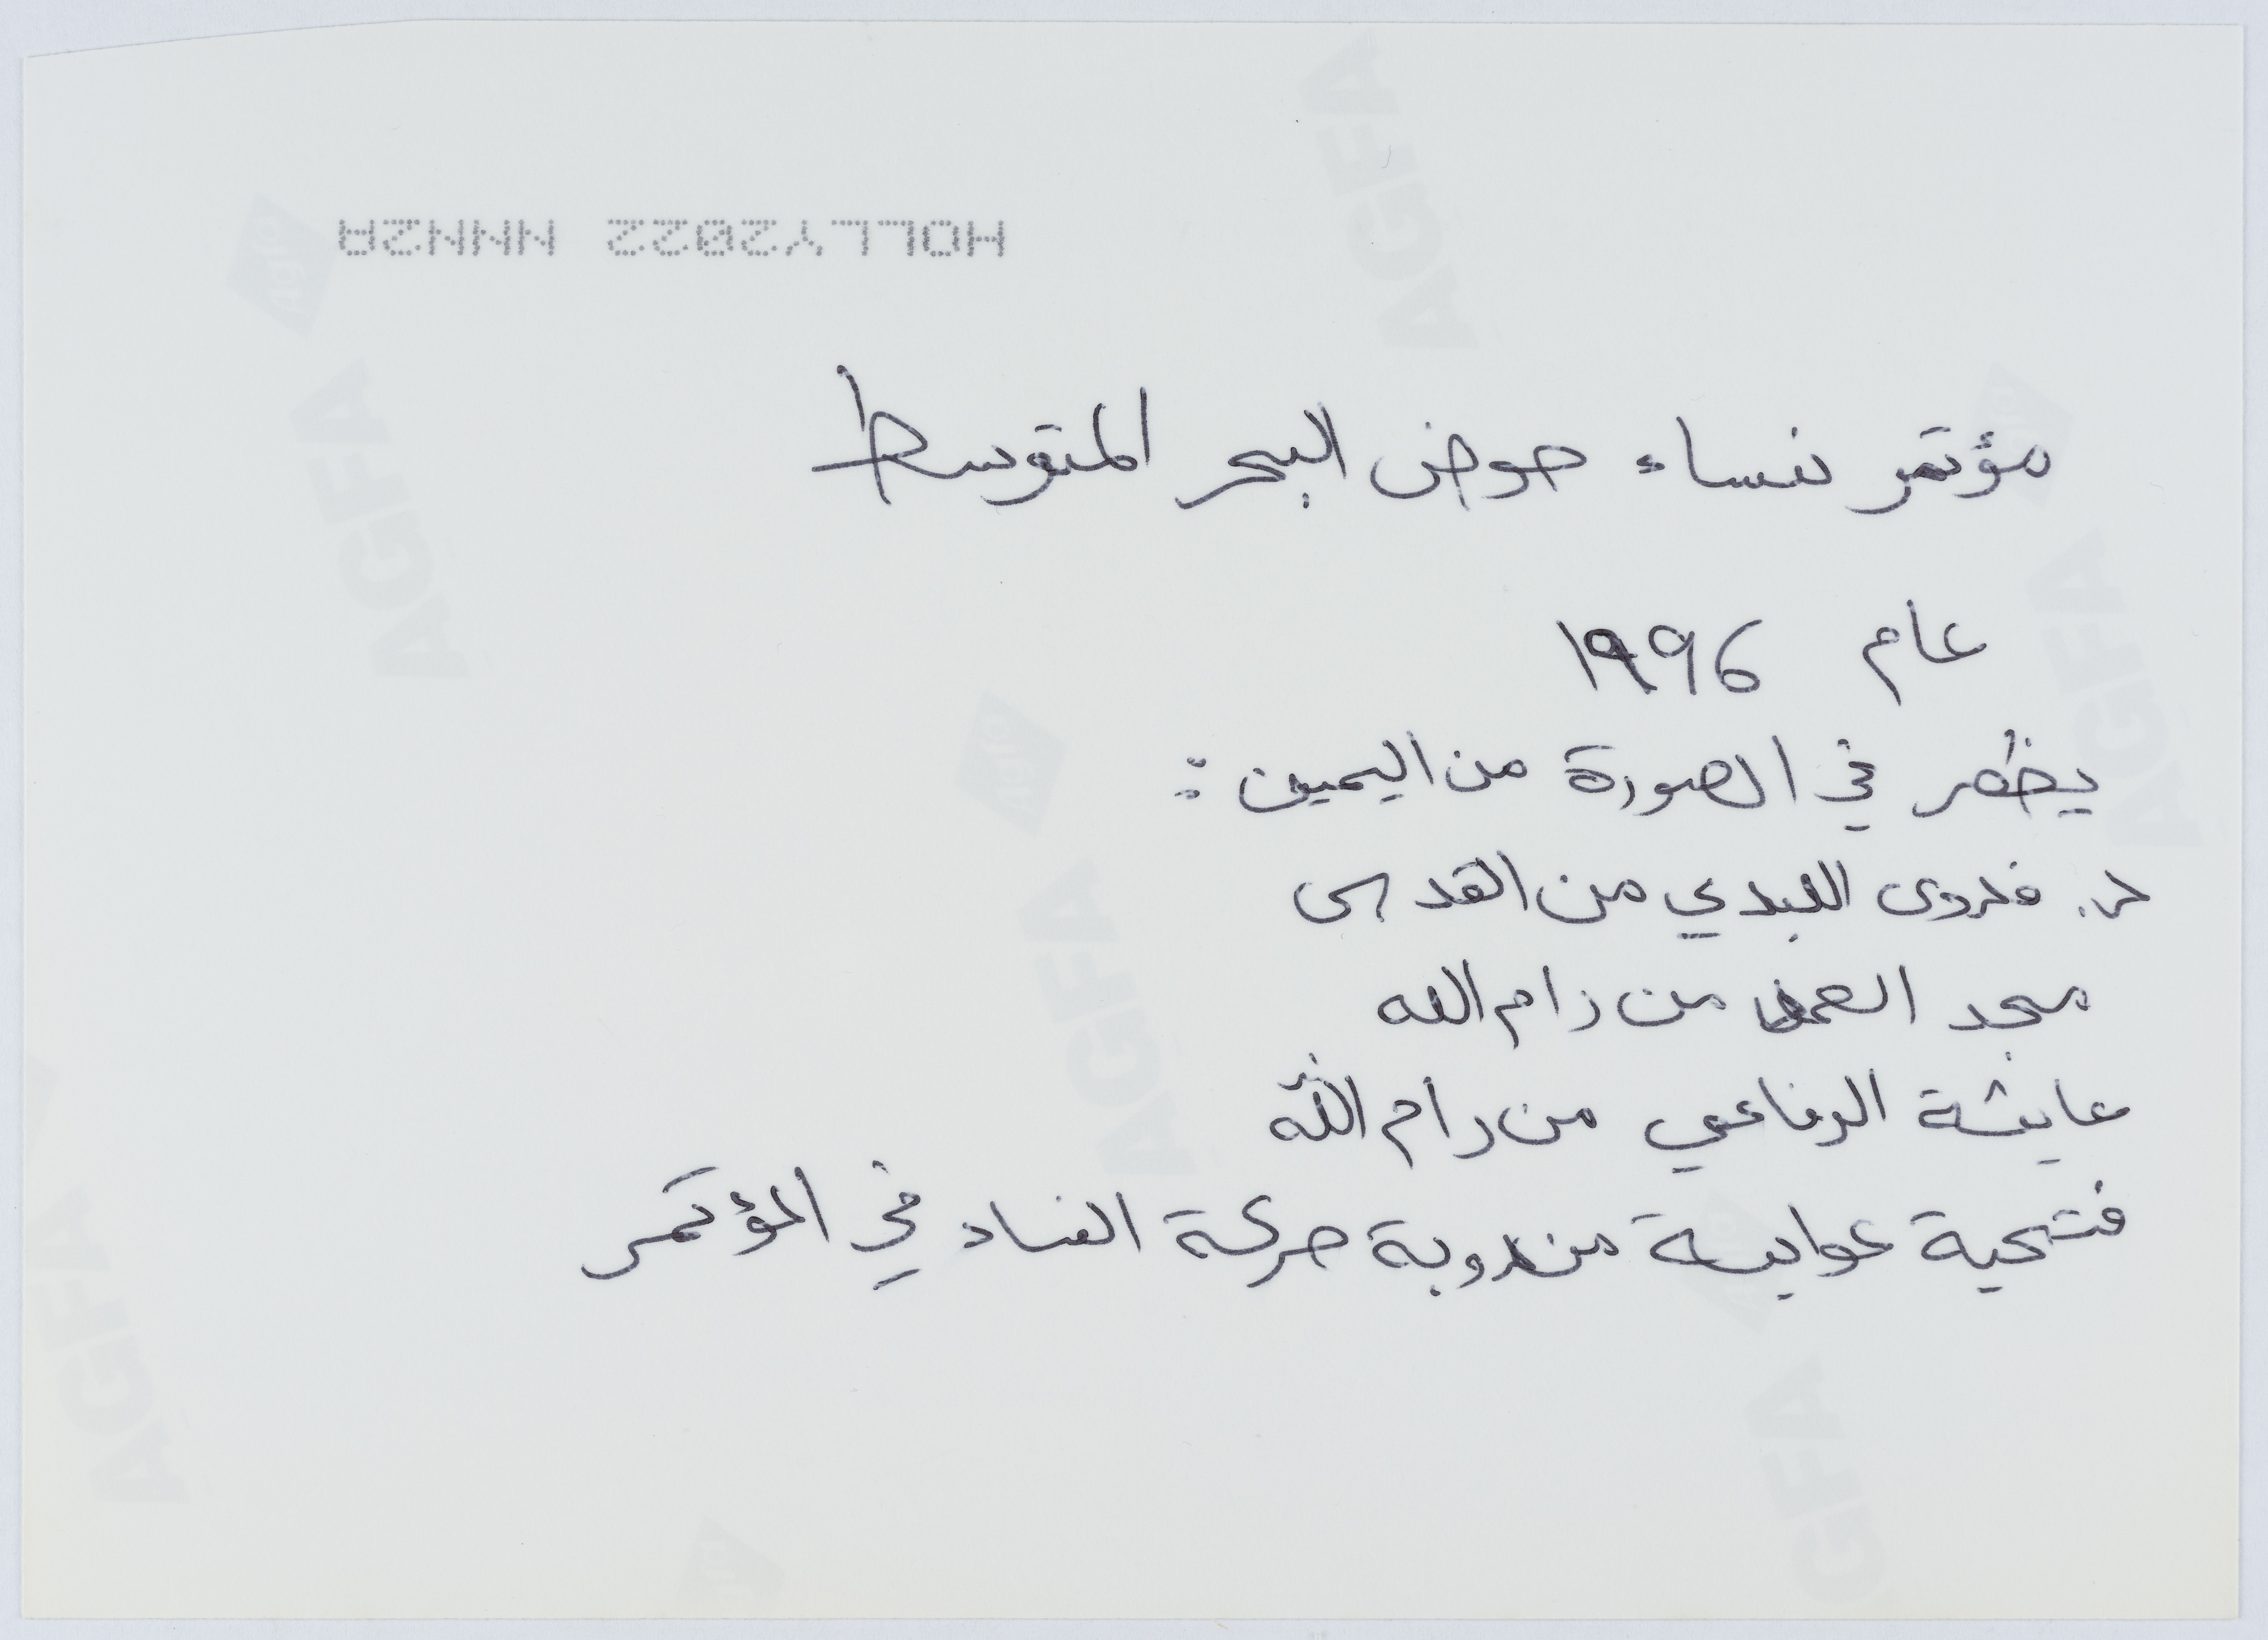 HOLLY2022 NNNN2A
مؤتمر نساء حوض البحر المتوسط
عام 1996
يظهر في الصورة من اليمين :
د. فدوى اللبدي من القدس
مجد من رام الله
عايشة الرفاعي من رام الله
فتحية مندوبة حركة في المؤتمر
AGFA
AGFA
AGFA
AGFA
AGFA